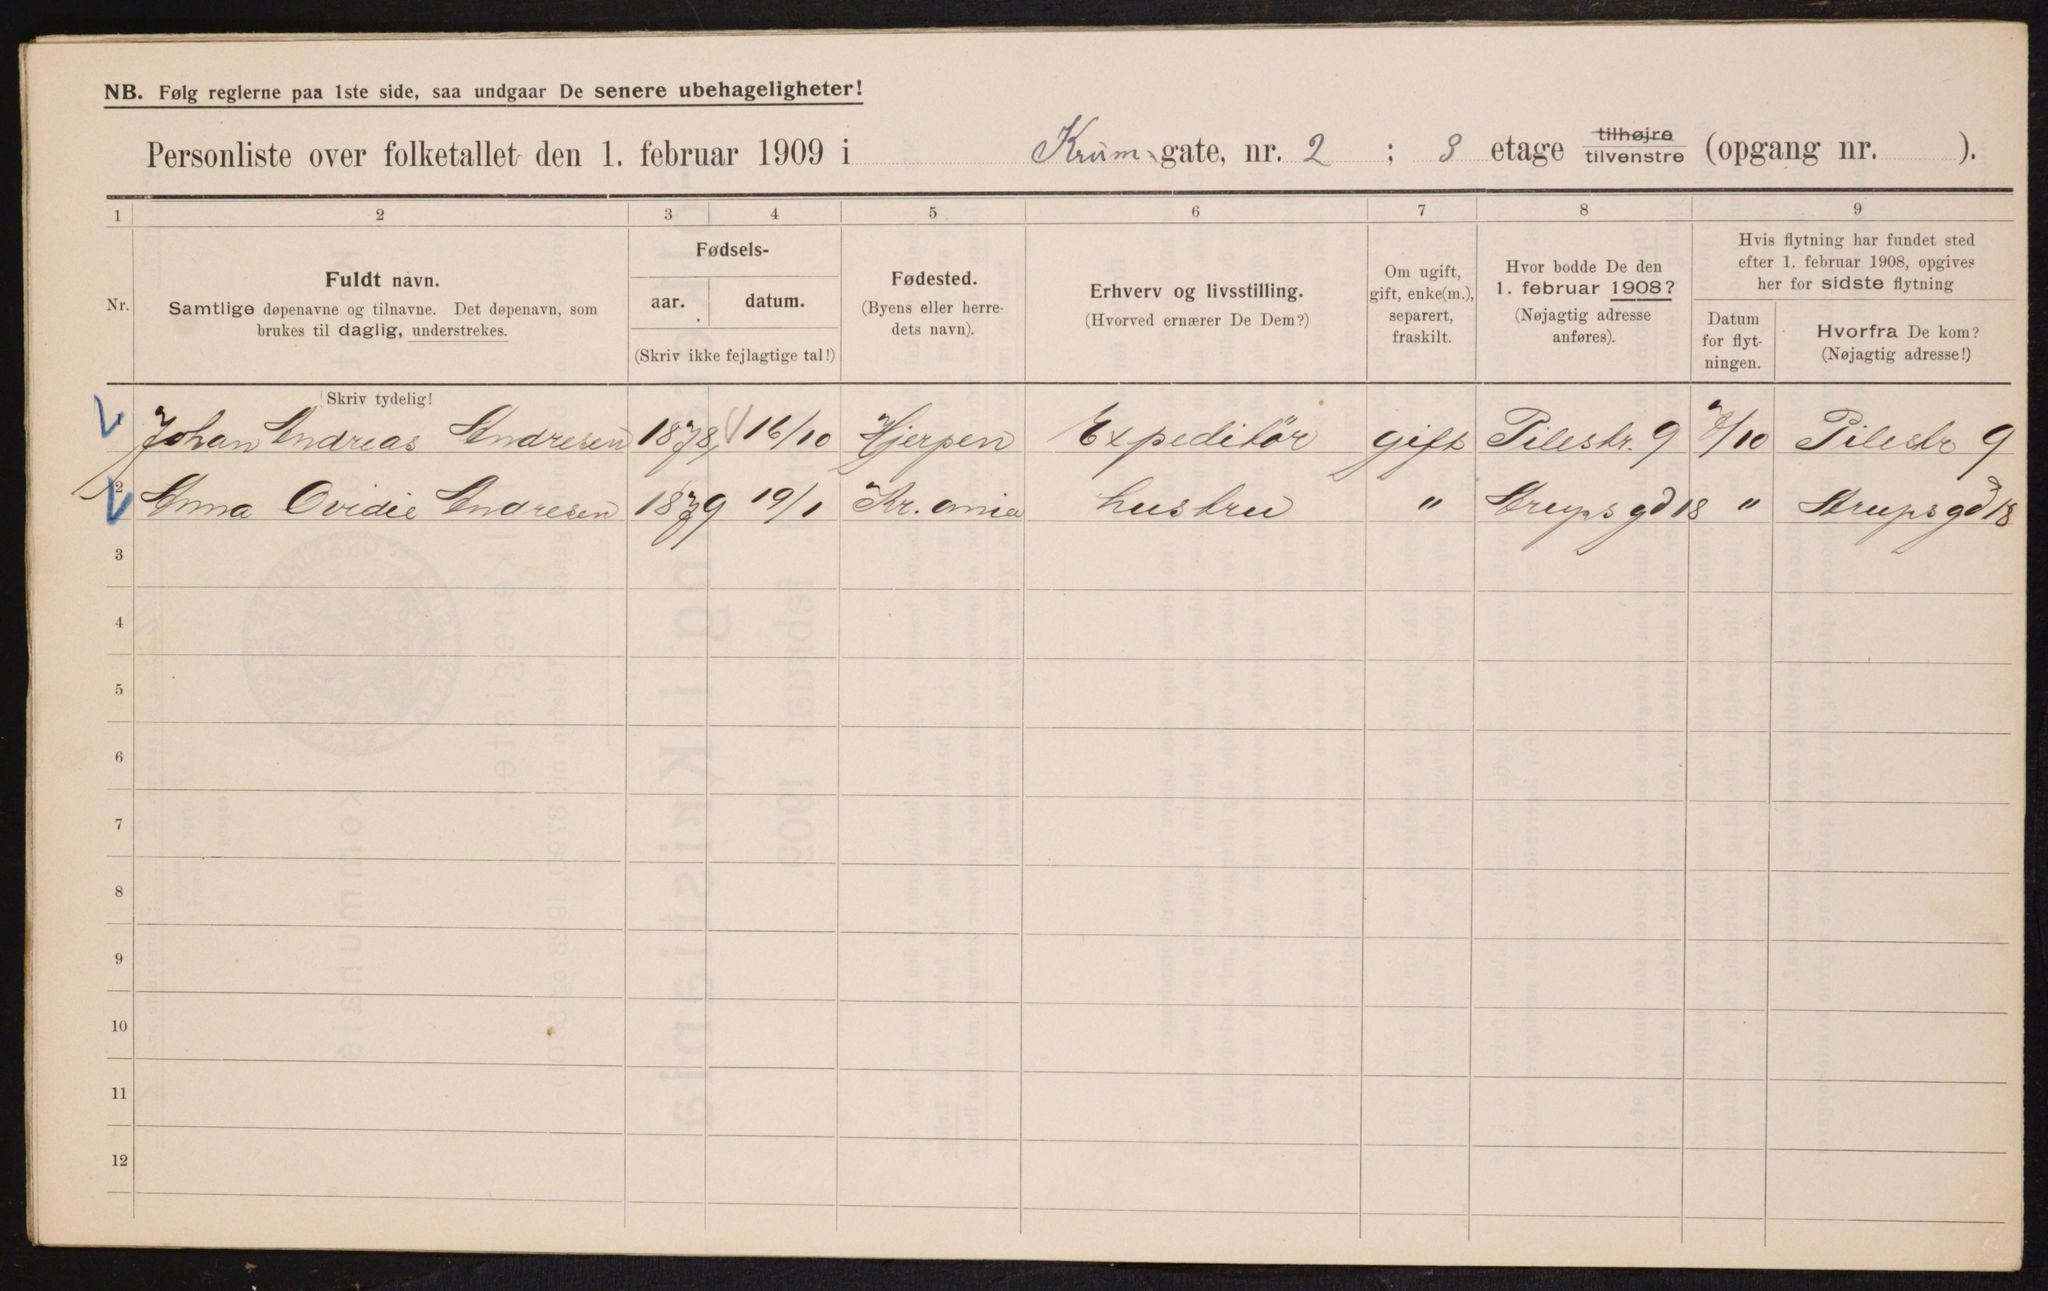 NB. Følg reglerne paa 1ste side, saa undgaar De senere ubehageligheter!
Personliste over folketallet den 1. februar 1909 i Krum-gate, nr. 2 ; 3 etage tilhøjre tilvenstre (opgang nr. ).
1 2 3 4 5 6 7 8 9
Nr.
Fuldt navn.
Samtlige døpenavne og tilnavne. Det døpenavn, som
brukes til daglig, understrekes.
Fødsels-
aar. datum.
(Skriv ikke fejlagtige tal!)
Fødested.
(Byens eller herre-
dets navn).
Erhverv og livsstilling.
(Hvorved ernærer De Dem?)
Om ugift,
gift, enke(m.),
separert,
fraskilt.
Hvor bodde De den
1. februar 1908?
(Nøjagtig adresse
anføres).
Hvis flytning har fundet sted
efter 1. februar 1908, opgives
her for sidste flytning
Datum
for flyt-
ningen.
Hvorfra De kom?
(Nøjagtig adresse!)
Skriv tydelig!
Johan Andreas Andresen 1878 16/10 Hjerpen Expeditør gift Pilestr. 9 /10 Pilestr 9
2 Anna Ovidie Andresen 1879 19/1 Kr. ania hustru " Strupsgd 18 " Strupsgd 18
3
4
5
6
7
8
9
10
11
12